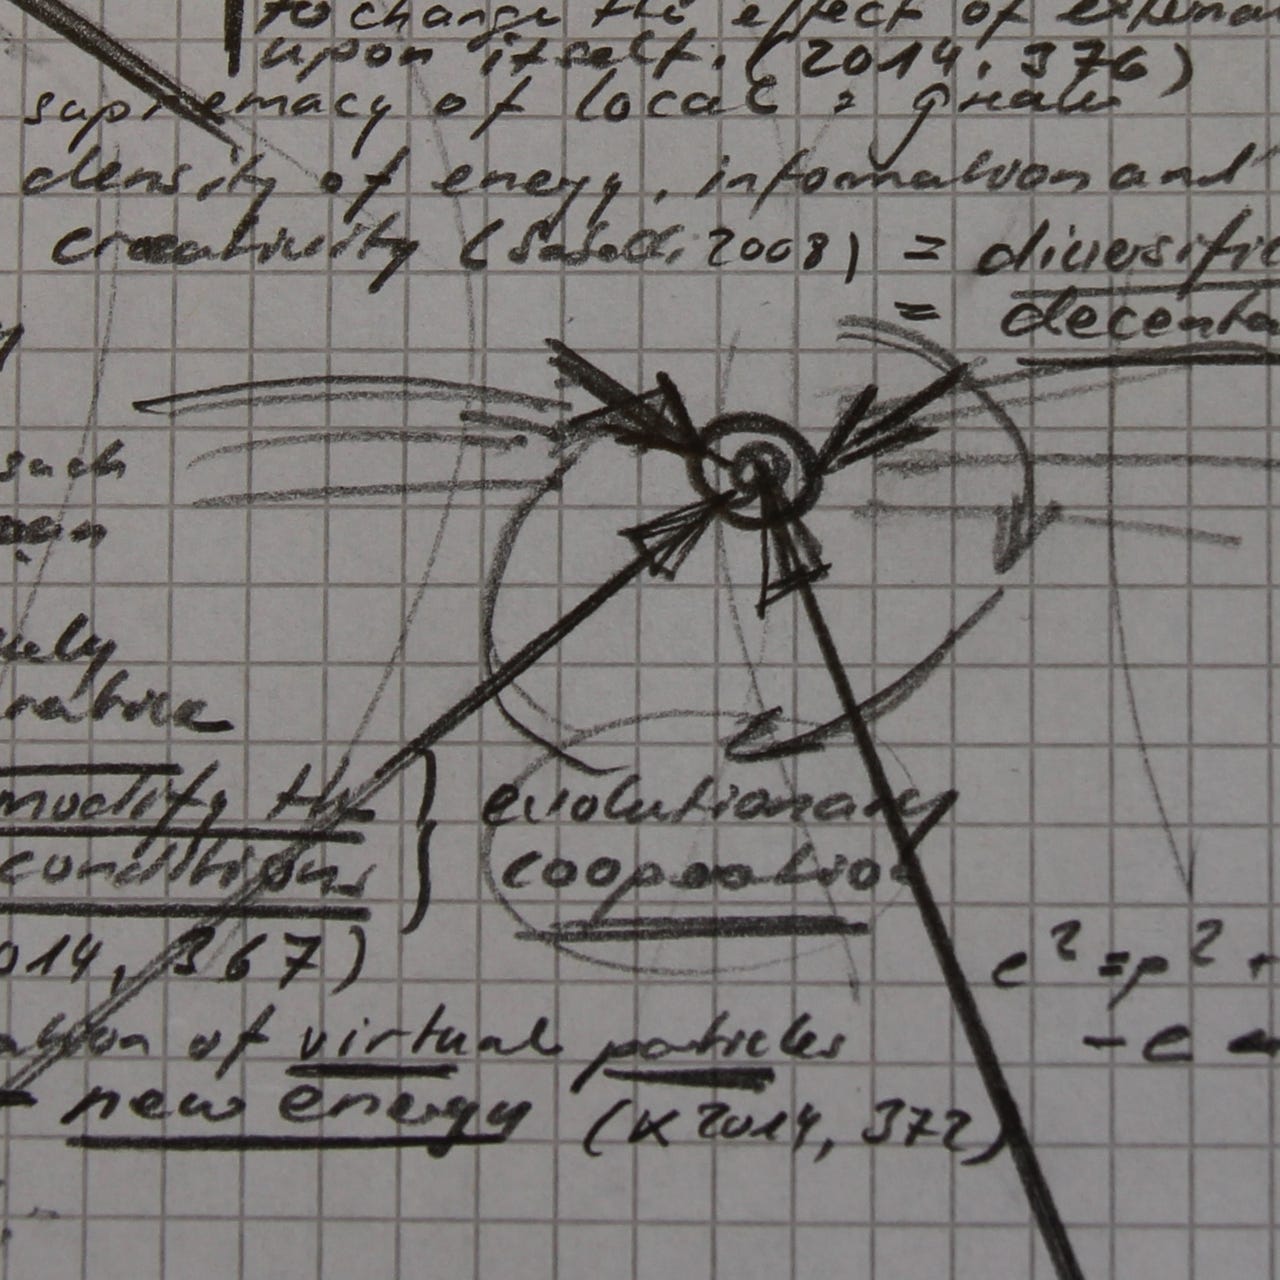 to change the effect of external
upon itself. (2014, 376)
supremacy of local = greater
density of energy, information and
creativity ( 2008) = diversific
= decentra
such
uely
native
modify the
conditions
014, 367)
evolutionary
cooperation
e² = p² +
- e
ation of virtual particles
= new energy (K 2014, 372)